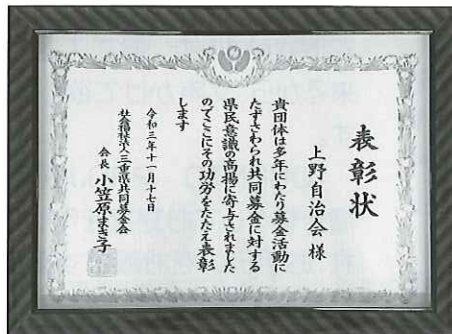 表彰状
上野自治会 様
貴団体は多年にわたり募金活動に
たずさわられ共同募金に対する
県民意識の高揚に寄与されました
のでここにその功労をたたえ表彰
します
令和三年十一月十七日
社会福祉法人三重県共同募金会
会長 小笠原まき子